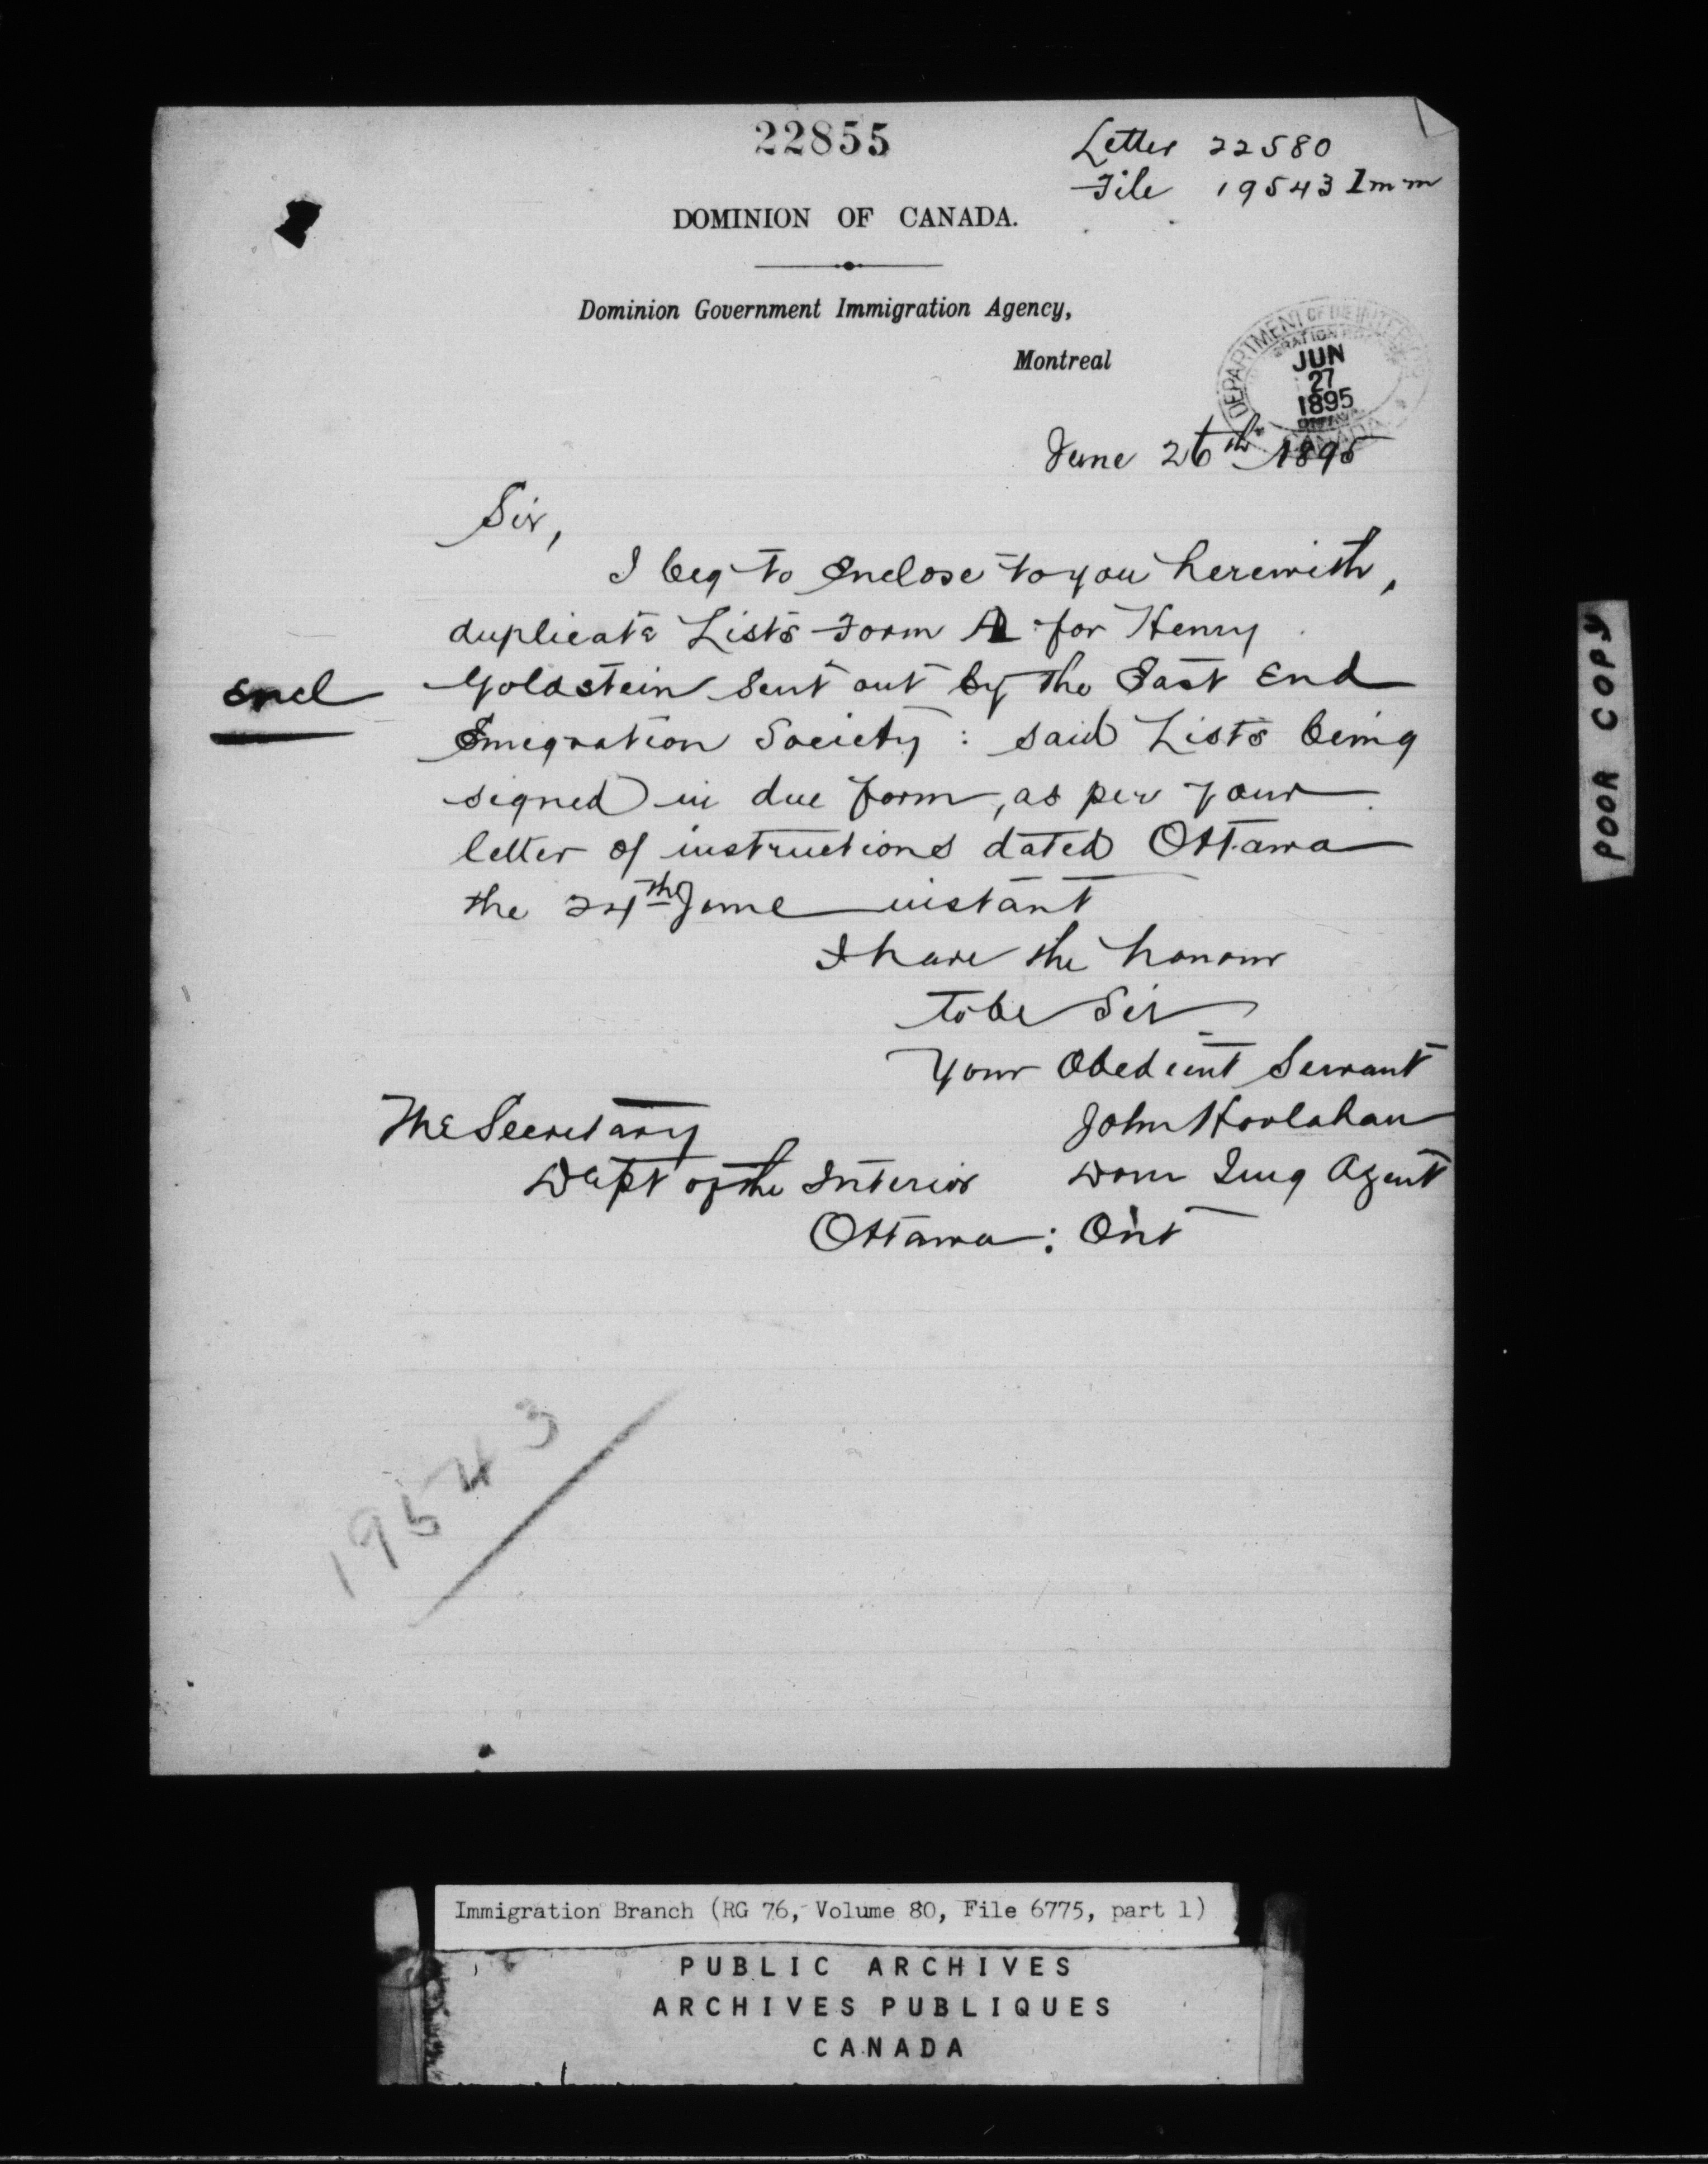 22855
Letter 22580
File 19543 Imm
DOMINION OF CANADA.
Dominion Government Immigration Agency,
Montreal
DEPARTMENT OF THE INTERIOR
JUN
27
1895
OTTAWA
CANADA
June 26th 1895
Sir,
I beg to Enclose to you herewith,
duplicate Lists Form A for Henry
encl
Goldstein Sent out by the East End
Emigration Society : said Lists being
signed in due form, as per your
letter of instructions dated Ottawa
the 24th June instant
I have the honour
to be Sir
Your Obedient Servant
The Secretary
John Hoolahan
Dept of the Interior
Dom Img Agent
Ottawa : Ont
19543
POOR COPY
Immigration Branch (RG 76, Volume 80, File 6775, part 1)
PUBLIC ARCHIVES
ARCHIVES PUBLIQUES
CANADA